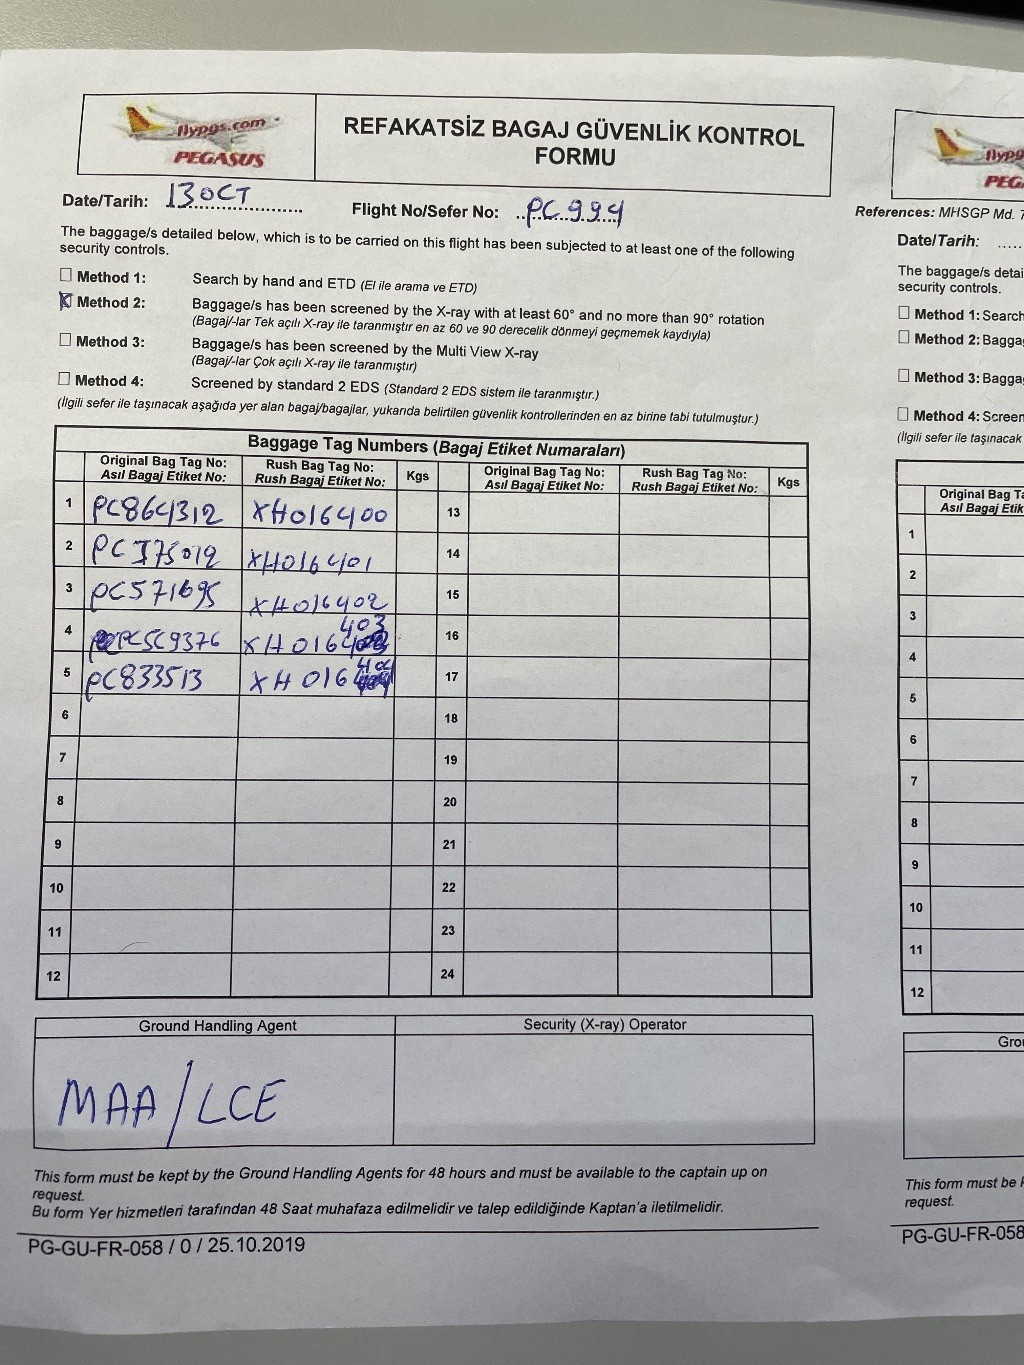 flypgs.com
PEGASUS
REFAKATSİZ BAGAJ GÜVENLİK KONTROL
FORMU
Date/Tarih: 13 OCT
Flight No/Sefer No: PC 994
The baggage/s detailed below, which is to be carried on this flight has been subjected to at least one of the following
security controls.
Method 1: Search by hand and ETD (El ile arama ve ETD)
Method 2: Baggage/s has been screened by the X-ray with at least 60° and no more than 90° rotation
(Bagaj/-lar Tek açılı X-ray ile taranmıştır en az 60 ve 90 derecelik dönmeyi geçmemek kaydıyla)
Method 3: Baggage/s has been screened by the Multi View X-ray
(Bagaj/-lar Çok açılı X-ray ile taranmıştır)
Method 4: Screened by standard 2 EDS (Standard 2 EDS sistem ile taranmıştır.)
(İlgili sefer ile taşınacak aşağıda yer alan bagaj/bagajlar, yukarıda belirtilen güvenlik kontrollerinden en az birine tabi tutulmuştur.)
Baggage Tag Numbers (Bagaj Etiket Numaraları)
Original Bag Tag No: Rush Bag Tag No: Kgs Original Bag Tag No: Rush Bag Tag No: Kgs
Asıl Bagaj Etiket No: Rush Bagaj Etiket No: Asıl Bagaj Etiket No: Rush Bagaj Etiket No:
1 PC864312 XH016400 13
2 XH016401 14
3 PC571695 XH016402 15
4 XH016403 16
5 PC833513 XH016404 17
6 18
7 19
8 20
9 21
10 22
11 23
12 24
Ground Handling Agent Security (X-ray) Operator
MAA/LCE
This form must be kept by the Ground Handling Agents for 48 hours and must be available to the captain up on
request.
Bu form Yer hizmetleri tarafından 48 Saat muhafaza edilmelidir ve talep edildiğinde Kaptan'a iletilmelidir.
PG-GU-FR-058 / 0 / 25.10.2019
References: MHSGP Md. 7
Date/Tarih:
The baggage/s detai
security controls.
Method 1: Search
Method 2: Bagga
Method 3: Bagga
Method 4: Screen
(İlgili sefer ile taşınacak
Original Bag Ta
Asıl Bagaj Etik
1
2
3
4
5
6
7
8
9
10
11
12
Grou
This form must be
request.
PG-GU-FR-058